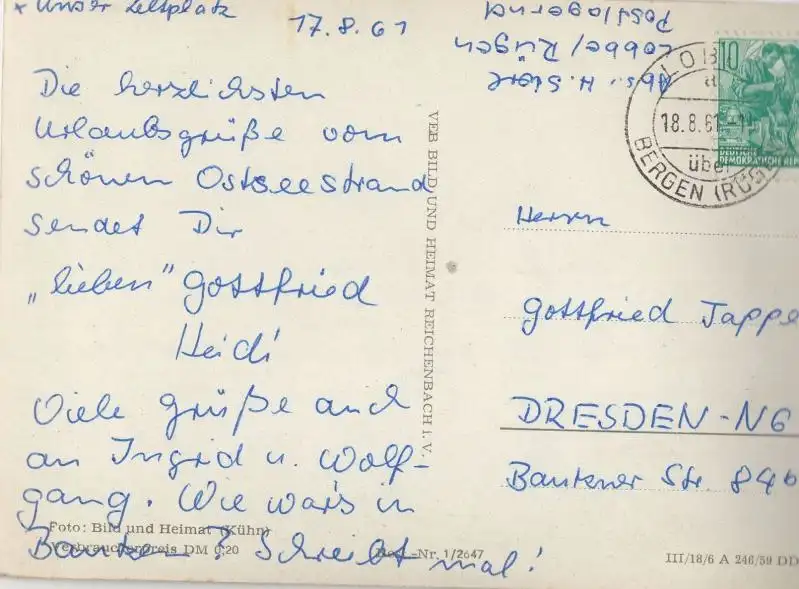 * Unser Zeltplatz
17.8.61
Die herzlichsten
Urlaubsgrüße vom
schönen Ostseestrand
sendet Dir
„lieben" Gottfried
Heidi
Viele Grüße auch
an Ingrid u. Wolf-
gang. Wie war's in
Bautzen? Schreibt mal!
Foto: Bild und Heimat (Kühn)
Verbraucherpreis DM 0,20
Best.-Nr. 1/2647
VEB BILD UND HEIMAT REICHENBACH i. V.
Abs.: H.
Lobbe/Rügen
Postlagernd
10
DEUTSCHE
DEMOKRATISCHE REP
18.8.61
über
BERGEN (RÜG
Herrn
Gottfried Tappe
DRESDEN-N6
Bautzner Str. 84b
III/18/6 A 246/59 DD